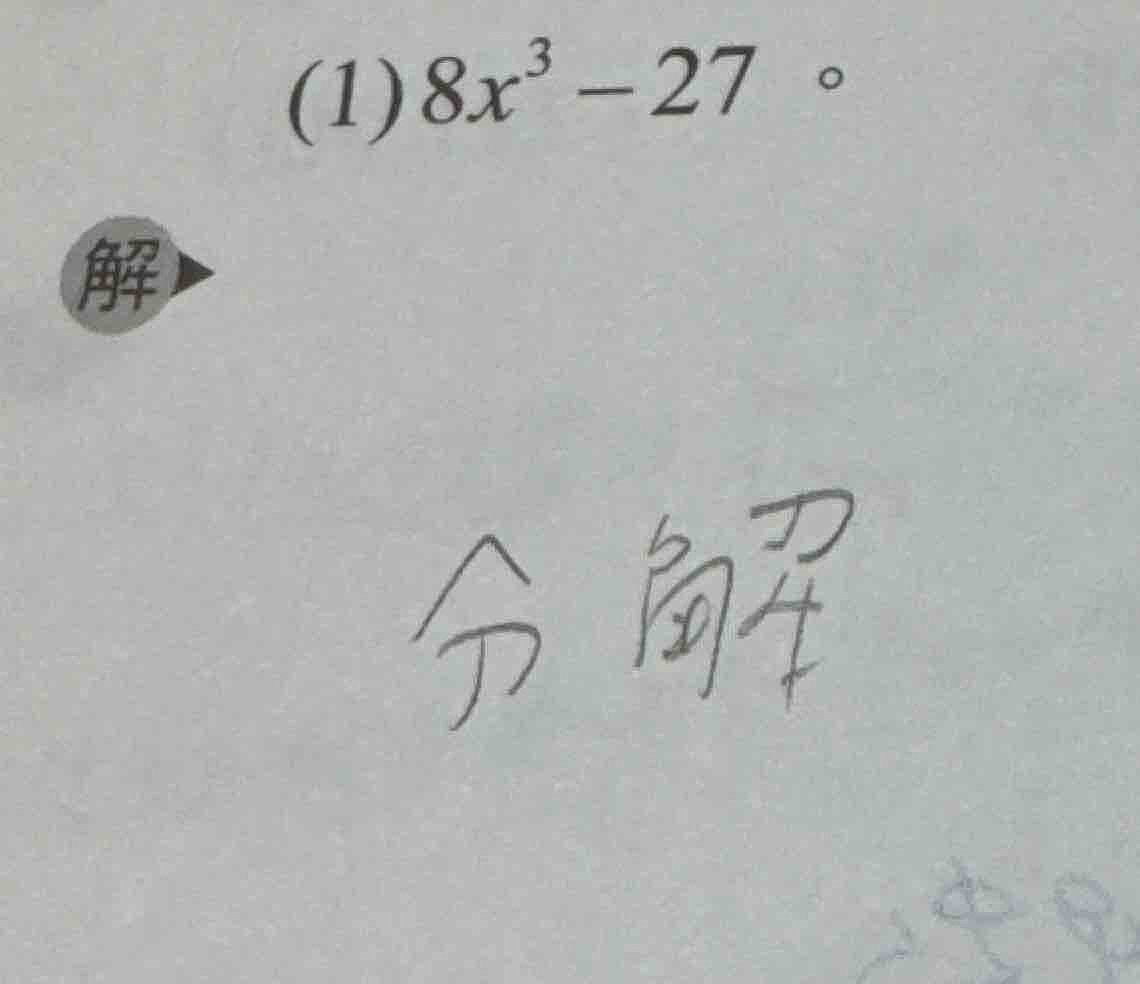 (1) 8x³ − 27。
解
分解